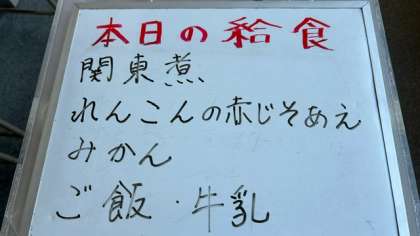 本日の給食
関東煮
れんこんの赤じそあえ
みかん
ご飯・牛乳